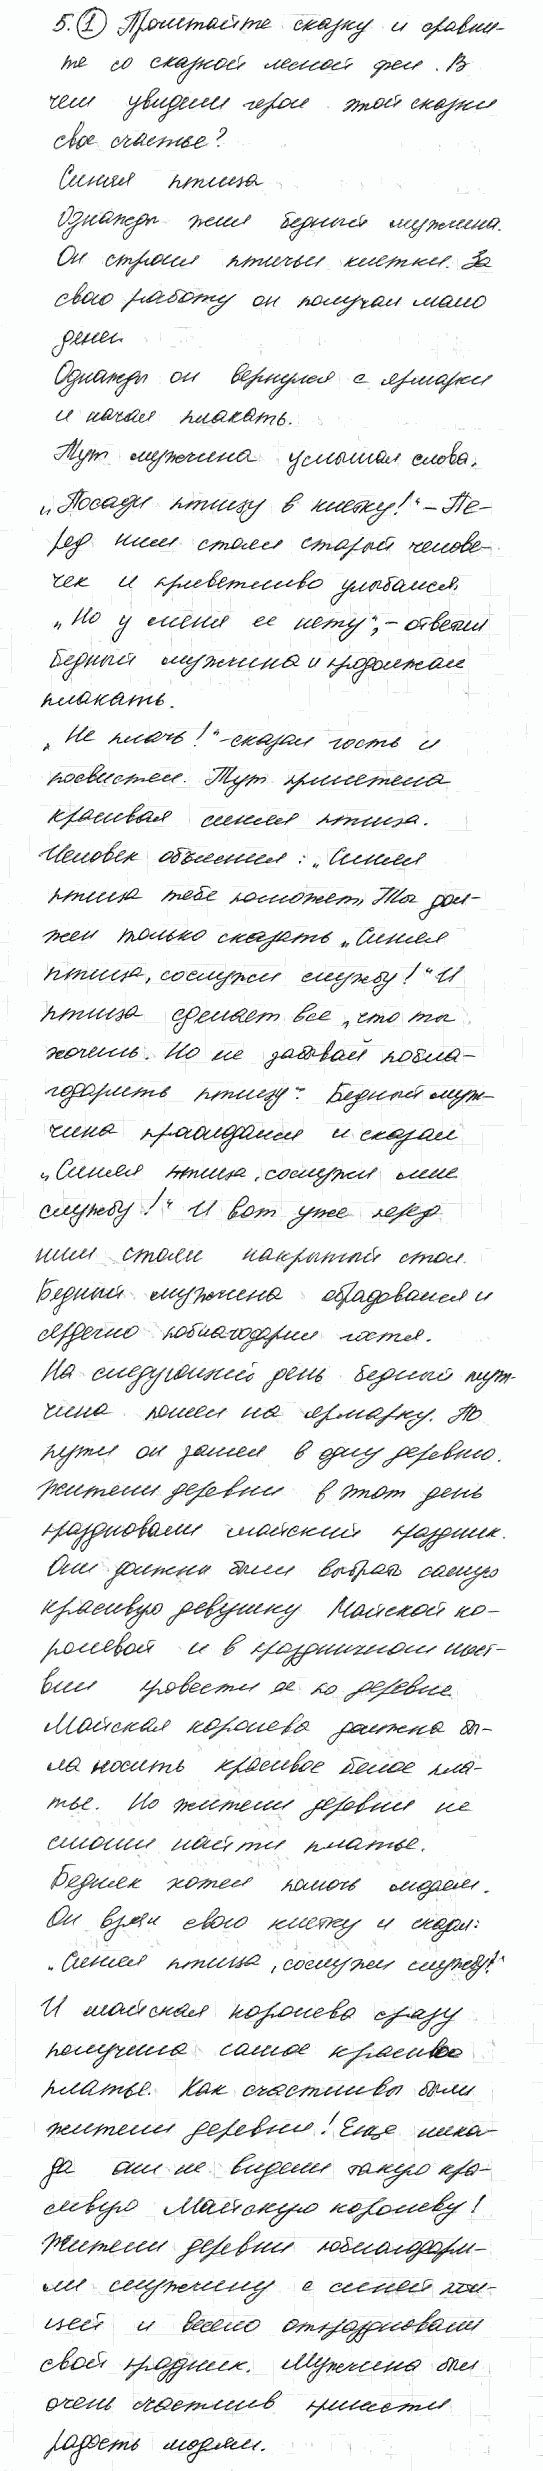 5. ① Прочитайте сказку и сравни-
те со сказкой лесной феи. В
чем увидели герои этой сказки
свое счастье?
Синяя птица
Однажды жил бедный мужчина.
Он строил птичьи клетки. За
свою работу он получал мало
денег.
Однажды он вернулся с ярмарки
и начал плакать.
Тут мужчина услышал слова:
„Посади птицу в клетку!“ – Пе-
ред ним стоял старый челове-
чек и приветливо улыбался.
„Но у меня ее нету“, – ответил
бедный мужчина и продолжал
плакать.
„Не плачь!“ – сказал гость и
посвистел. Тут прилетела
красивая синяя птица.
Человек объяснил: „Синяя
птица тебе поможет. Ты дол-
жен только сказать „Синяя
птица, сослужи службу!“ И
птица сделает все, что ты
хочешь. Но не забывай побла-
годарить птицу“. Бедный муж-
чина прослезился и сказал
„Синяя птица, сослужи мне
службу!“ И вот уже перед
ним стоял накрытый стол.
Бедный мужчина обрадовался и
сердечно поблагодарил гостя.
На следующий день бедный муж-
чина пошел на ярмарку. По
пути он зашел в одну деревню.
Жители деревни в этот день
праздновали майский праздник.
Они должны были выбрать самую
красивую девушку Майской ко-
ролевой и в праздничном шест-
вии провести ее по деревне.
Майская королева должна бы-
ла носить красивое белое пла-
тье. Но жители деревни не
смогли найти платье.
Бедняк хотел помочь людям.
Он взял свою клетку и сказал:
„Синяя птица, сослужи службу!“
И майская королева сразу
получила самое красивое
платье. Как счастливы были
жители деревни! Еще никог-
да они не видели такую кра-
сивую Майскую королеву!
Жители деревни поблагодари-
ли мужчину с синей пти-
цей и весело отпраздновали
свой праздник. Мужчина был
очень счастлив принести
радость людям.